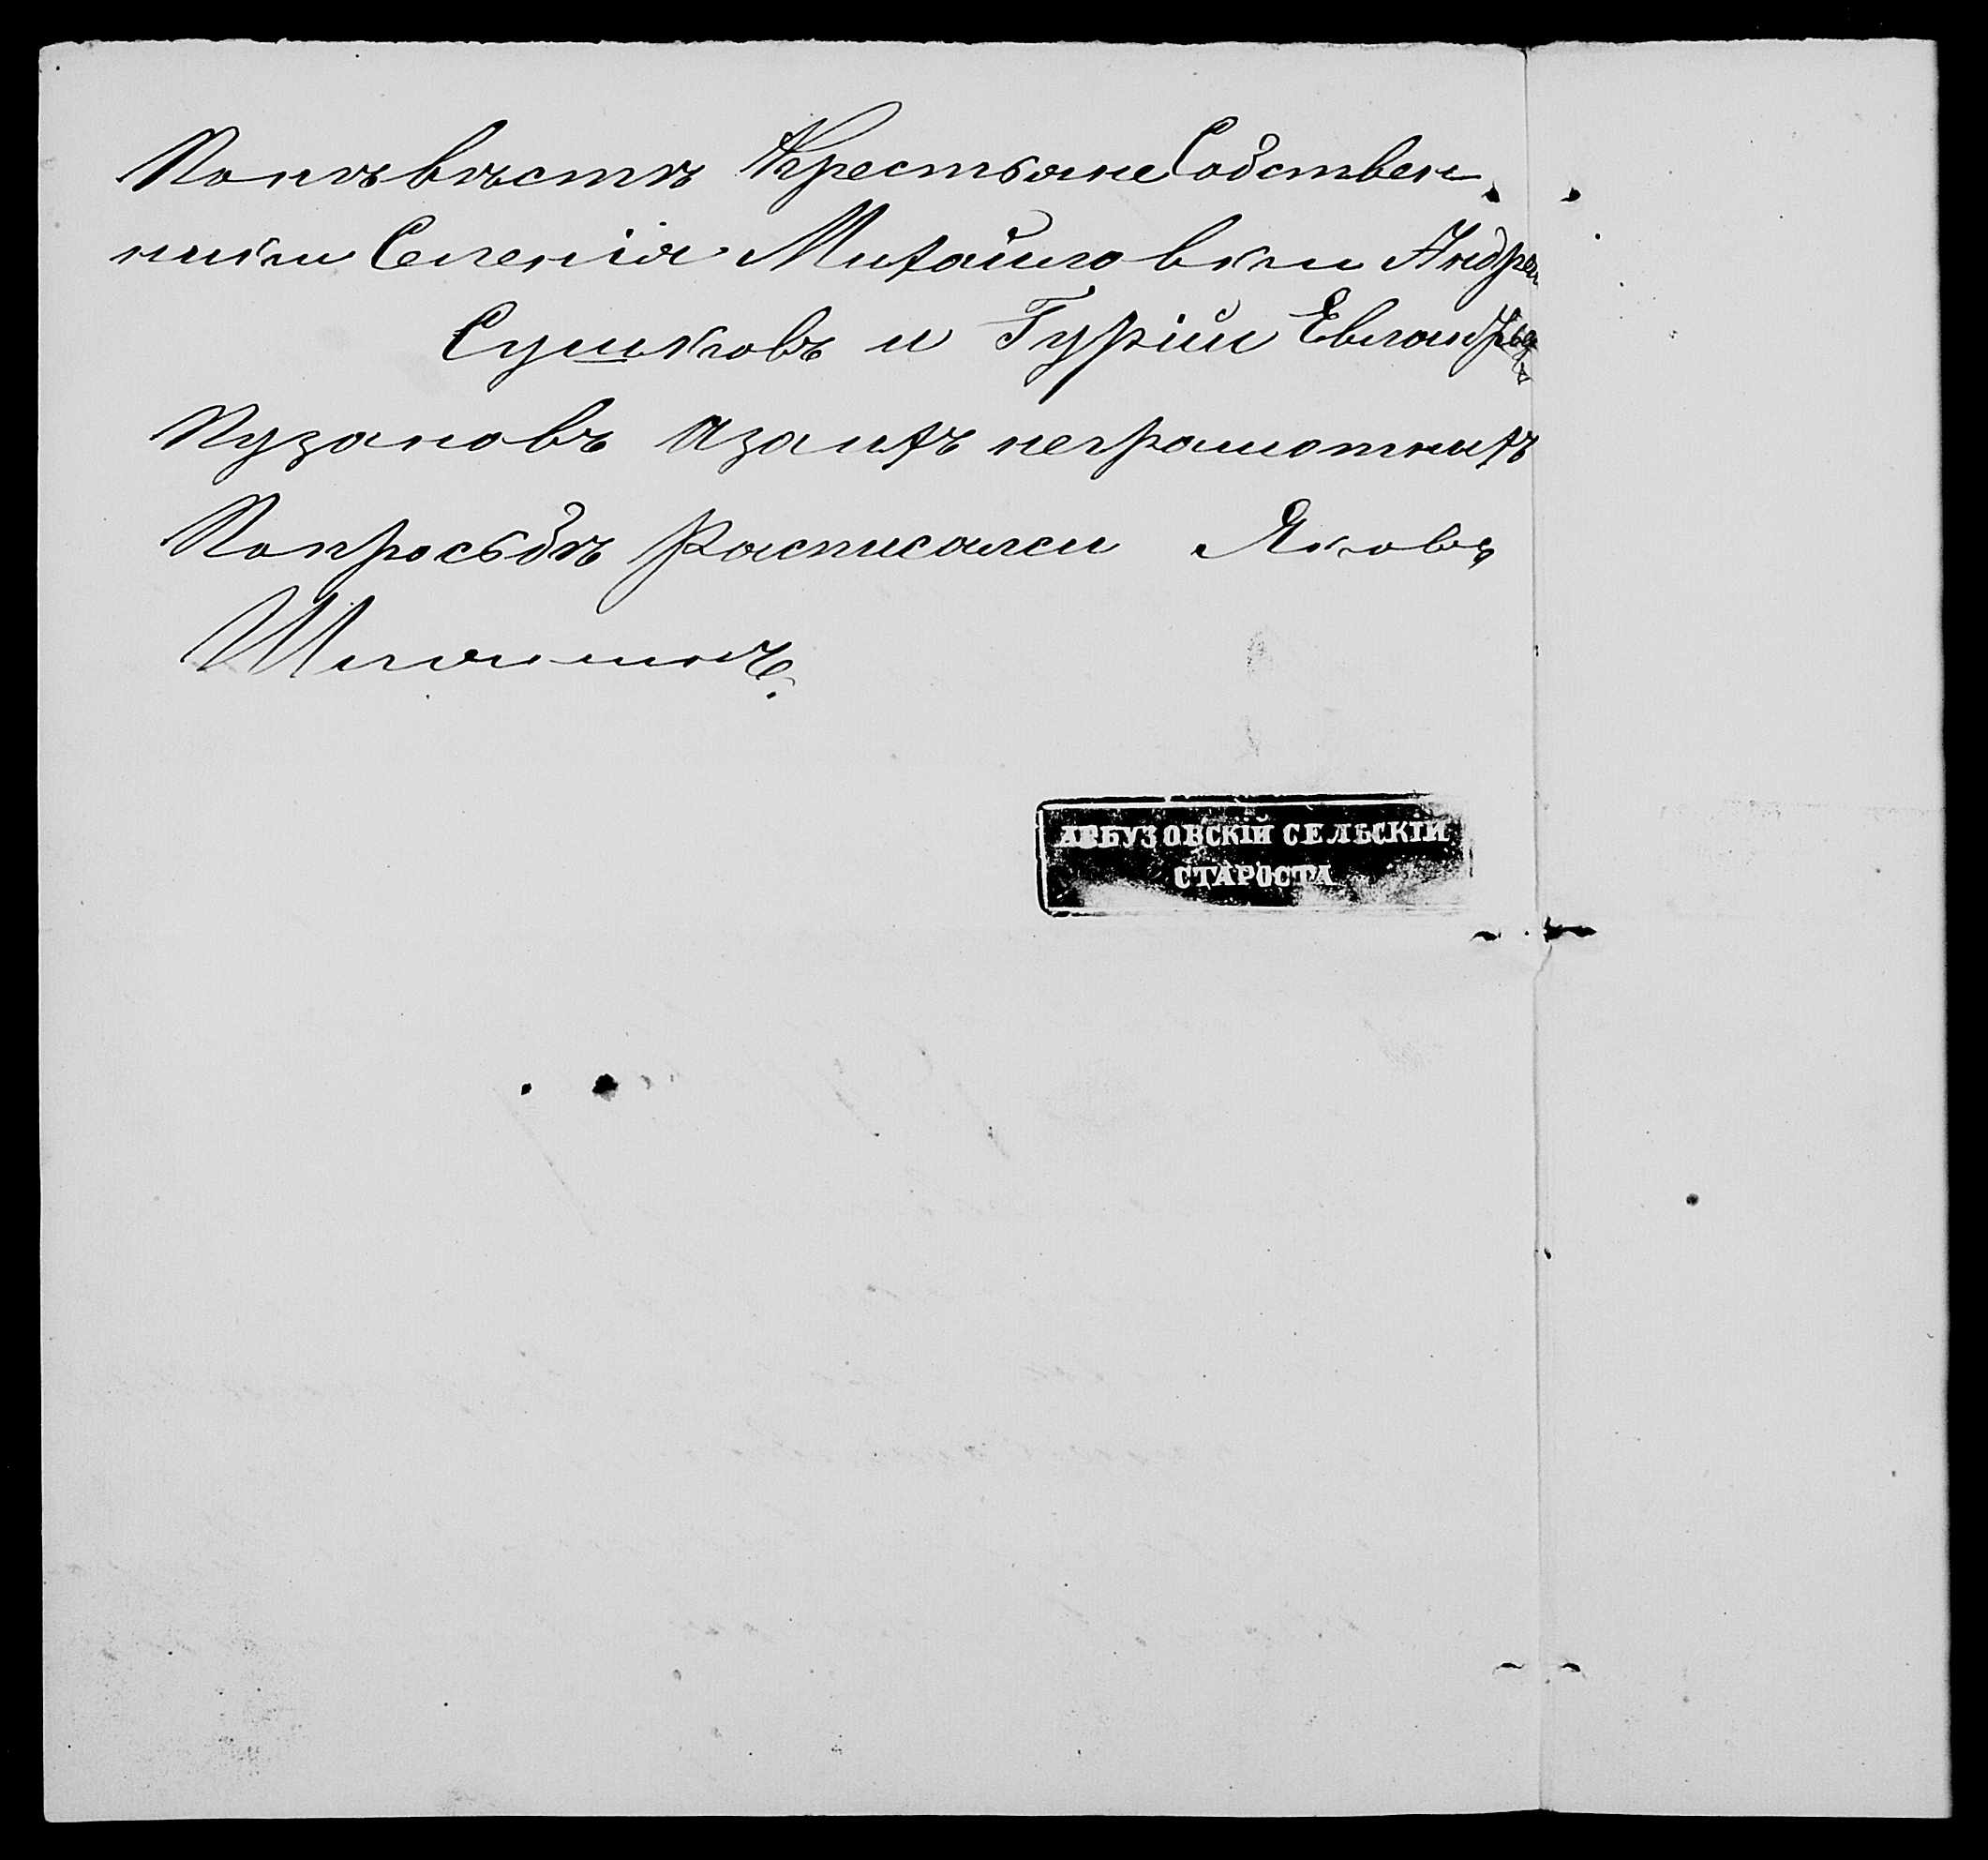 Поневѣстѣ Крестьяне Собствен
ники Селенія Михайловки Андрей
Сушковъ и Гурій Евландръ
Пузановъ азаихъ неграмотныхъ
Попросьбѣ Расписался Яковъ
АРБУЗОВСКІЙ СЕЛЬСКІЙ
СТАРОСТА